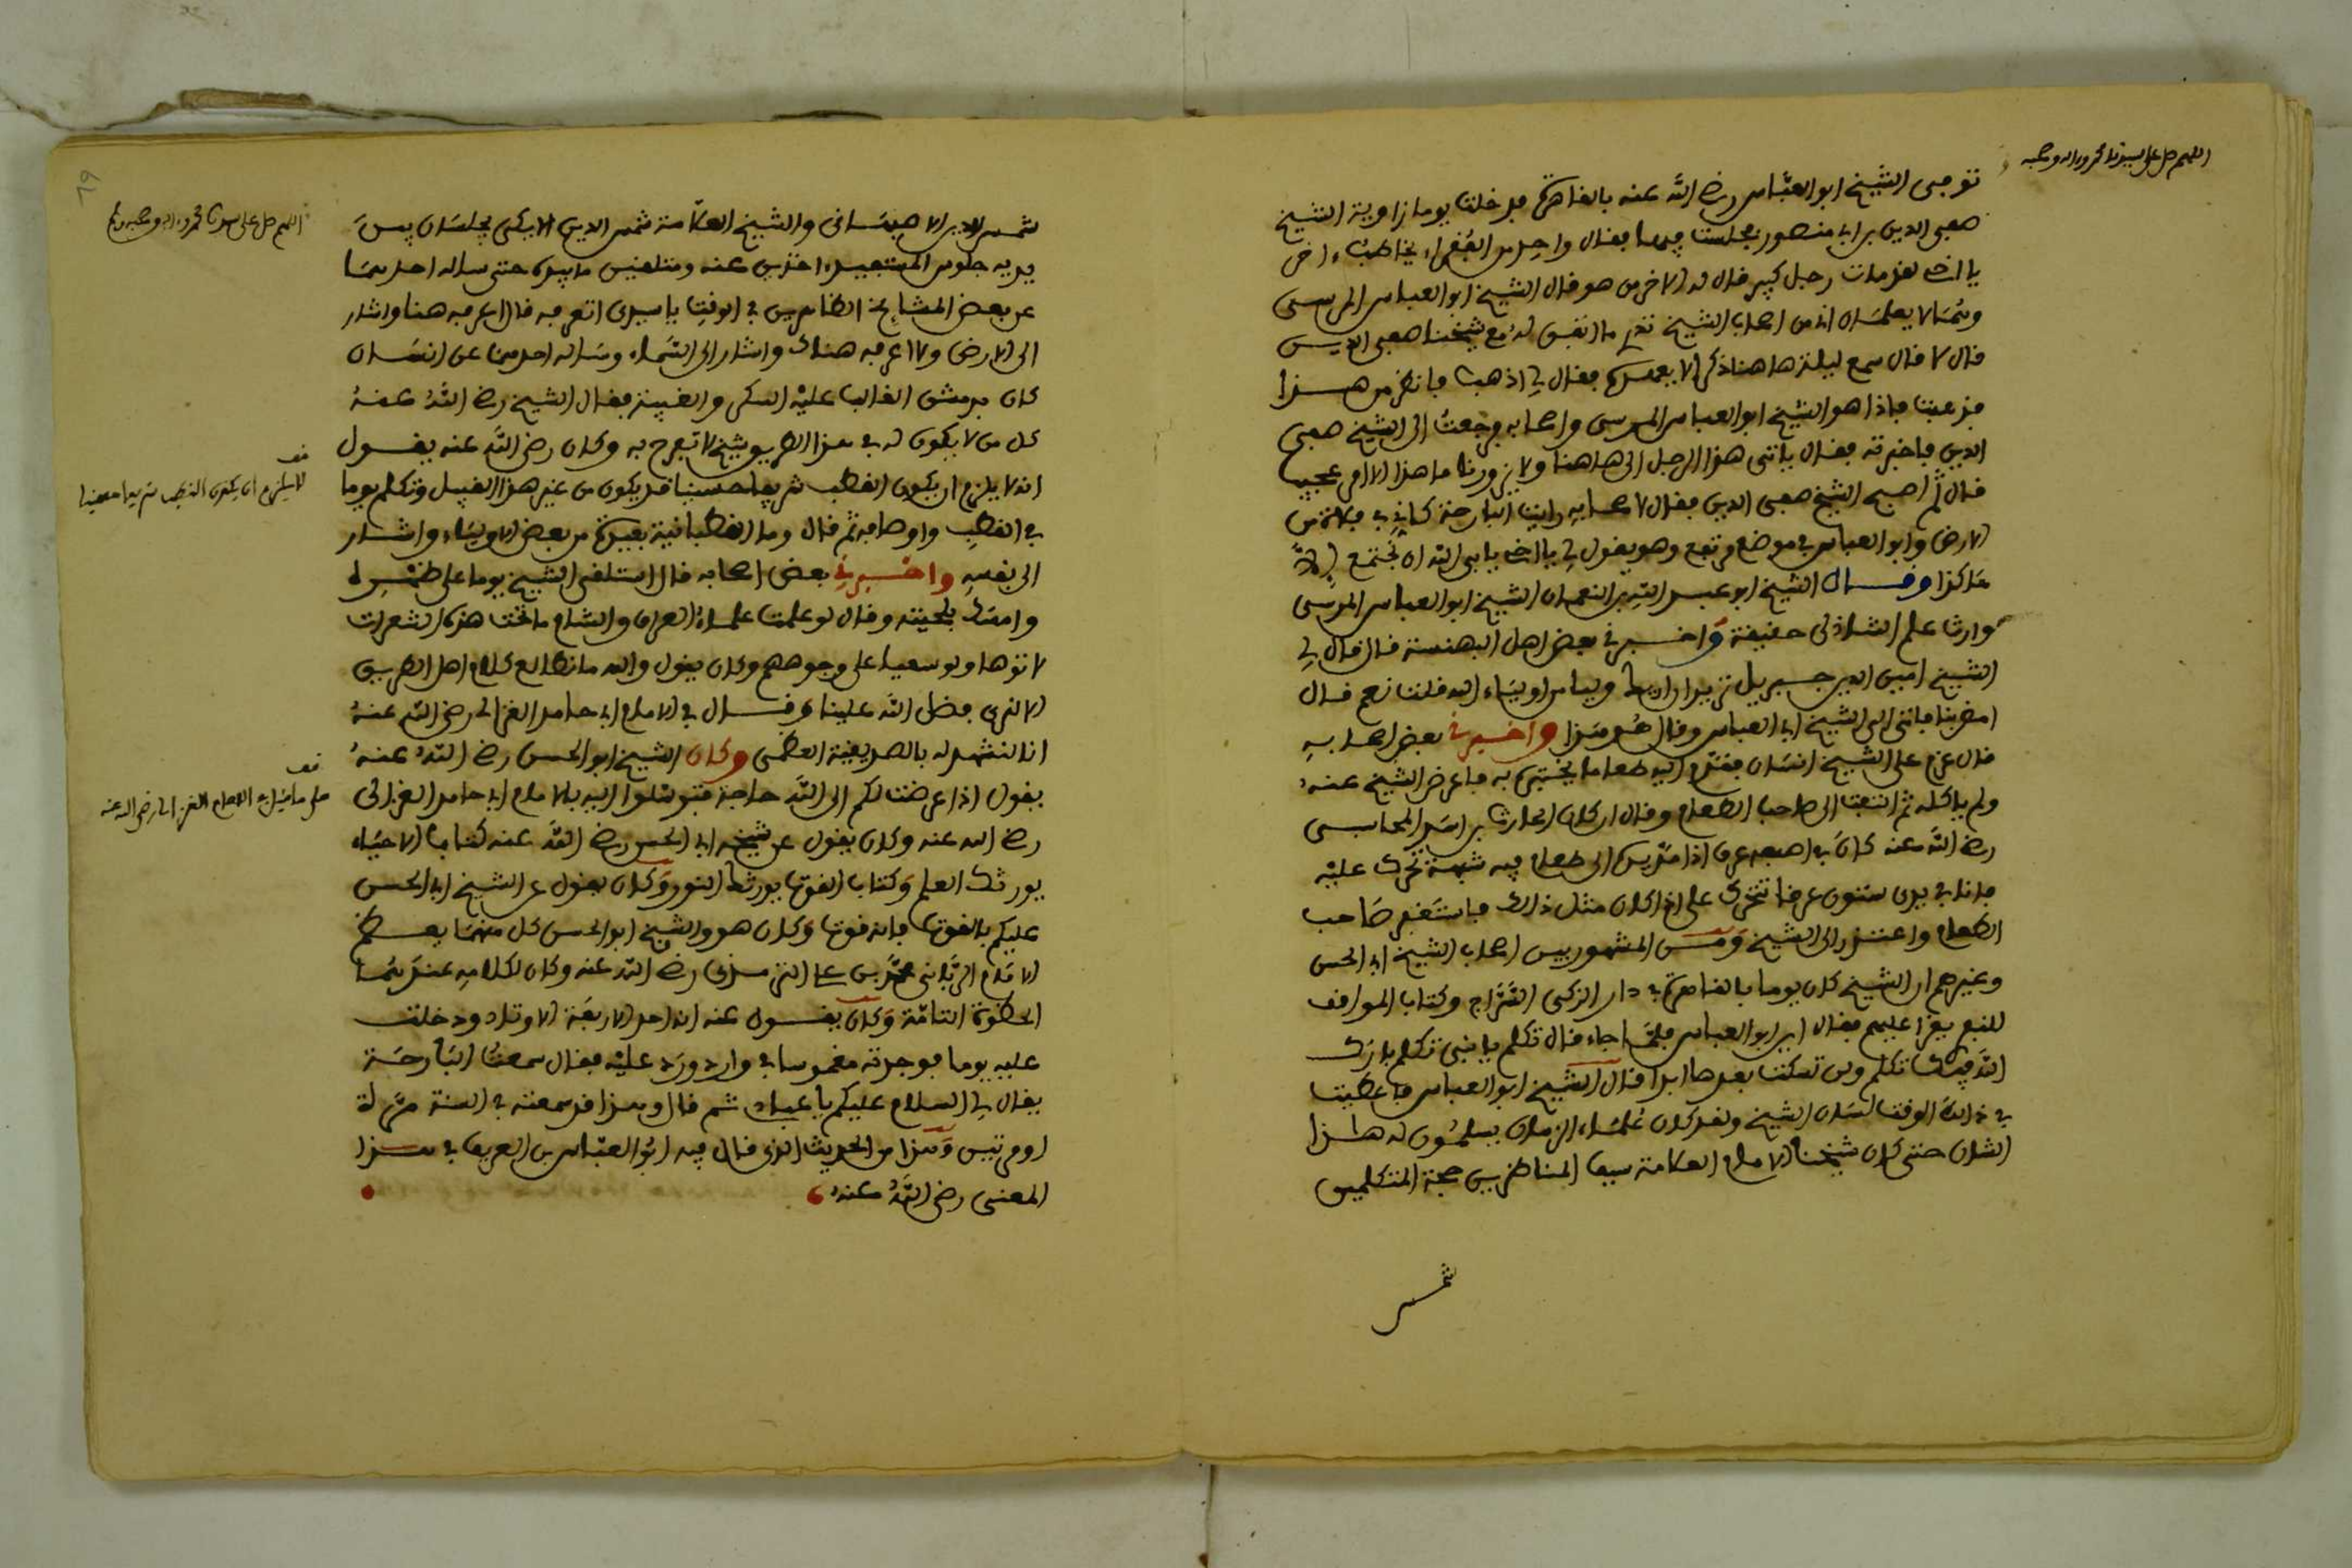 اللهم صل على سيدنا محمد واله وصحبه
توجى الشيخ ابو العباس رضي الله عنه بالقاهرة فدخلت يوما زاوية الشيخ
صفى الدين بن ابى منصور فجلست فيها فقال واحد من الفقراء يخاطب ءاخر
يا اخى لقد مات رجل كبير قال له الاخر من هو قال الشيخ ابو العباس المرسى
وهما لا يعلمان انى من اصحاب الشيخ ما اتفق له مع شيخنا صفى الدين
قال لا قال سمع ليلة هاهنا ذكرا لا يعهده فقال لى اذهب فانظر من هذا
فذهبت فاذا هو الشيخ ابو العباس المرسى واصحابه فرجعت الى الشيخ صفى
الدين فاخبرته فقال ياتى هذا الرجل الى هاهنا ولا يزورنا ما هذا الا امر عجيب
قال ثم اصبح الشيخ صفى الدين فقال لاصحابه رايت البارحة كانى فى فلاة من
الارض وابو العباس فى موضع مرتفع وهو يقول لى يا اخى يابى الله ان نجتمع الا
هكذا وقال الشيخ ابو عبد الله بن النعمان الشيخ ابو العباس المرسى
وارث علم الشاذلى حقيقة واخبرنى بعض اهل البهنسة قال قال لى
الشيخ امين الدين جبريل تريد ان اريك وليا من اولياء الله قلت نعم قال
امض بنا فاتى الى الشيخ ابى العباس وقال هو هذا واخبرنى بعض اصحابه
قال عزم على الشيخ انسان فقدم اليه طعاما يختبره به فاعرض الشيخ عنه
ولم ياكله ثم التفت الى صاحب الطعام وقال ان كان الحارث بن اسد المحاسبى
رضي الله عنه كان فى اصبعه عرق اذا مد يده الى طعام فيه شبهة تحرك عليه
فانا فى يدى ستون عرقا تتحرك على اذا كان مثل ذلك فاستغفر صاحب
الطعام واعتذر الى الشيخ ومن المشهور بين اصحاب الشيخ ابى الحسن
وغيرهم ان الشيخ كان يوما بالقاهرة فى دار الزكى السراج وكتاب المواقف
للنفرى يقرا عليهم فقال اين ابو العباس فلما جاء قال تكلم يا بنى تكلم بارك
الله فيك تكلم ولن تسكت بعدها ابدا قال الشيخ ابو العباس فاعطيت
فى ذلك الوقت لسان الشيخ ولقد كان علماء الزمان يسلمون له هذا
الشان حتى كان شيخنا الامام العلامة سيف المناظرين حجة المتكلمين
شمس
اللهم صل على سيدنا محمد واله وصحبه وسلم
شمس الدين الاصبهانى والشيخ العلامة شمس الدين الايكى يجلسان بين
يديه جلوس المستفيد اخذين عنه ومتلقين ما يبديه حتى ساله احدهما
عن بعض المشايخ الظاهرين فى الوقت يا سيدى اتعرفه قال اعرفه هنا واشار
الى الارض ولا اعرفه هناك واشار الى السماء وساله احدهما عن انسان
كان بدمشق الغالب عليه السكر والغيبة فقال الشيخ رضي الله عنه
كل من لا يكون له فى هذا الطريق شيخ لا تفرح به وكان رضى الله عنه يقول
انه لا يلزم ان يكون القطب شريفا حسينيا قد يكون من غير هذا القبيل وتكلم يوما
فى القطب واوصافه ثم قال وما القطبانية ببعيدة من بعض الاولياء واشار
الى نفسه واخبرنى بعض اصحابه قال استلقى الشيخ يوما على ظهره
وامسك بلحيته وقال لو علمت علماء العراق والشام ما تحت هذه الشعرات
لاتوها ولو سعيا على وجوههم وكان يقول والله ما نطالع كلام اهل الطريق
الا لنرى فضل الله علينا وقال فى الامام ابى حامد الغزالى رضى الله عنه
انا لنشهد له بالصديقية العظمى وكان الشيخ ابو الحسن رضي الله عنه
يقول اذا عرضت لكم الى الله حاجة فتوسلوا اليه بالامام ابى حامد الغزالى
رضي الله عنه وكان يقول عن شيخه ابى الحسن رضي الله عنه كتاب الاحياء
يورثك العلم وكتاب القوت يورثك النور وكان يقول عن الشيخ ابى الحسن
عليكم بالقوت فانه قوت وكان هو والشيخ ابو الحسن كل منهما يعظم
الامام الربانى محمد بن على الترمذى رضي الله عنه وكان لكلامه عندهما
الحظوة التامة وكان يقول عنه انه احد الاربعة الاوتاد ودخلت
عليه يوما فوجدته مغموسا فى وارد ورد عليه فقال سمعت البارحة
يقال لى السلام عليكم يا عبادى ثم قال وهذا قد سمعته فى السنة مرة
او مرتين وهذا من الحديث الذى قال فيه ابو العباس بن العريف فى هذا
المعنى رضى الله عنه
قف
لا يلزم ان يكون القطب شريفا حسينيا
قف
على ما قيل فى الامام الغزالى رضى الله عنه
٦٩